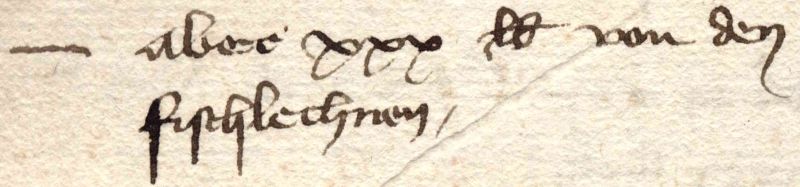 — aber xxx ℔ von den
fischlechnen /